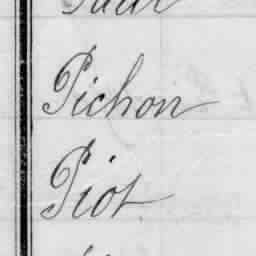 Pichon
Piot